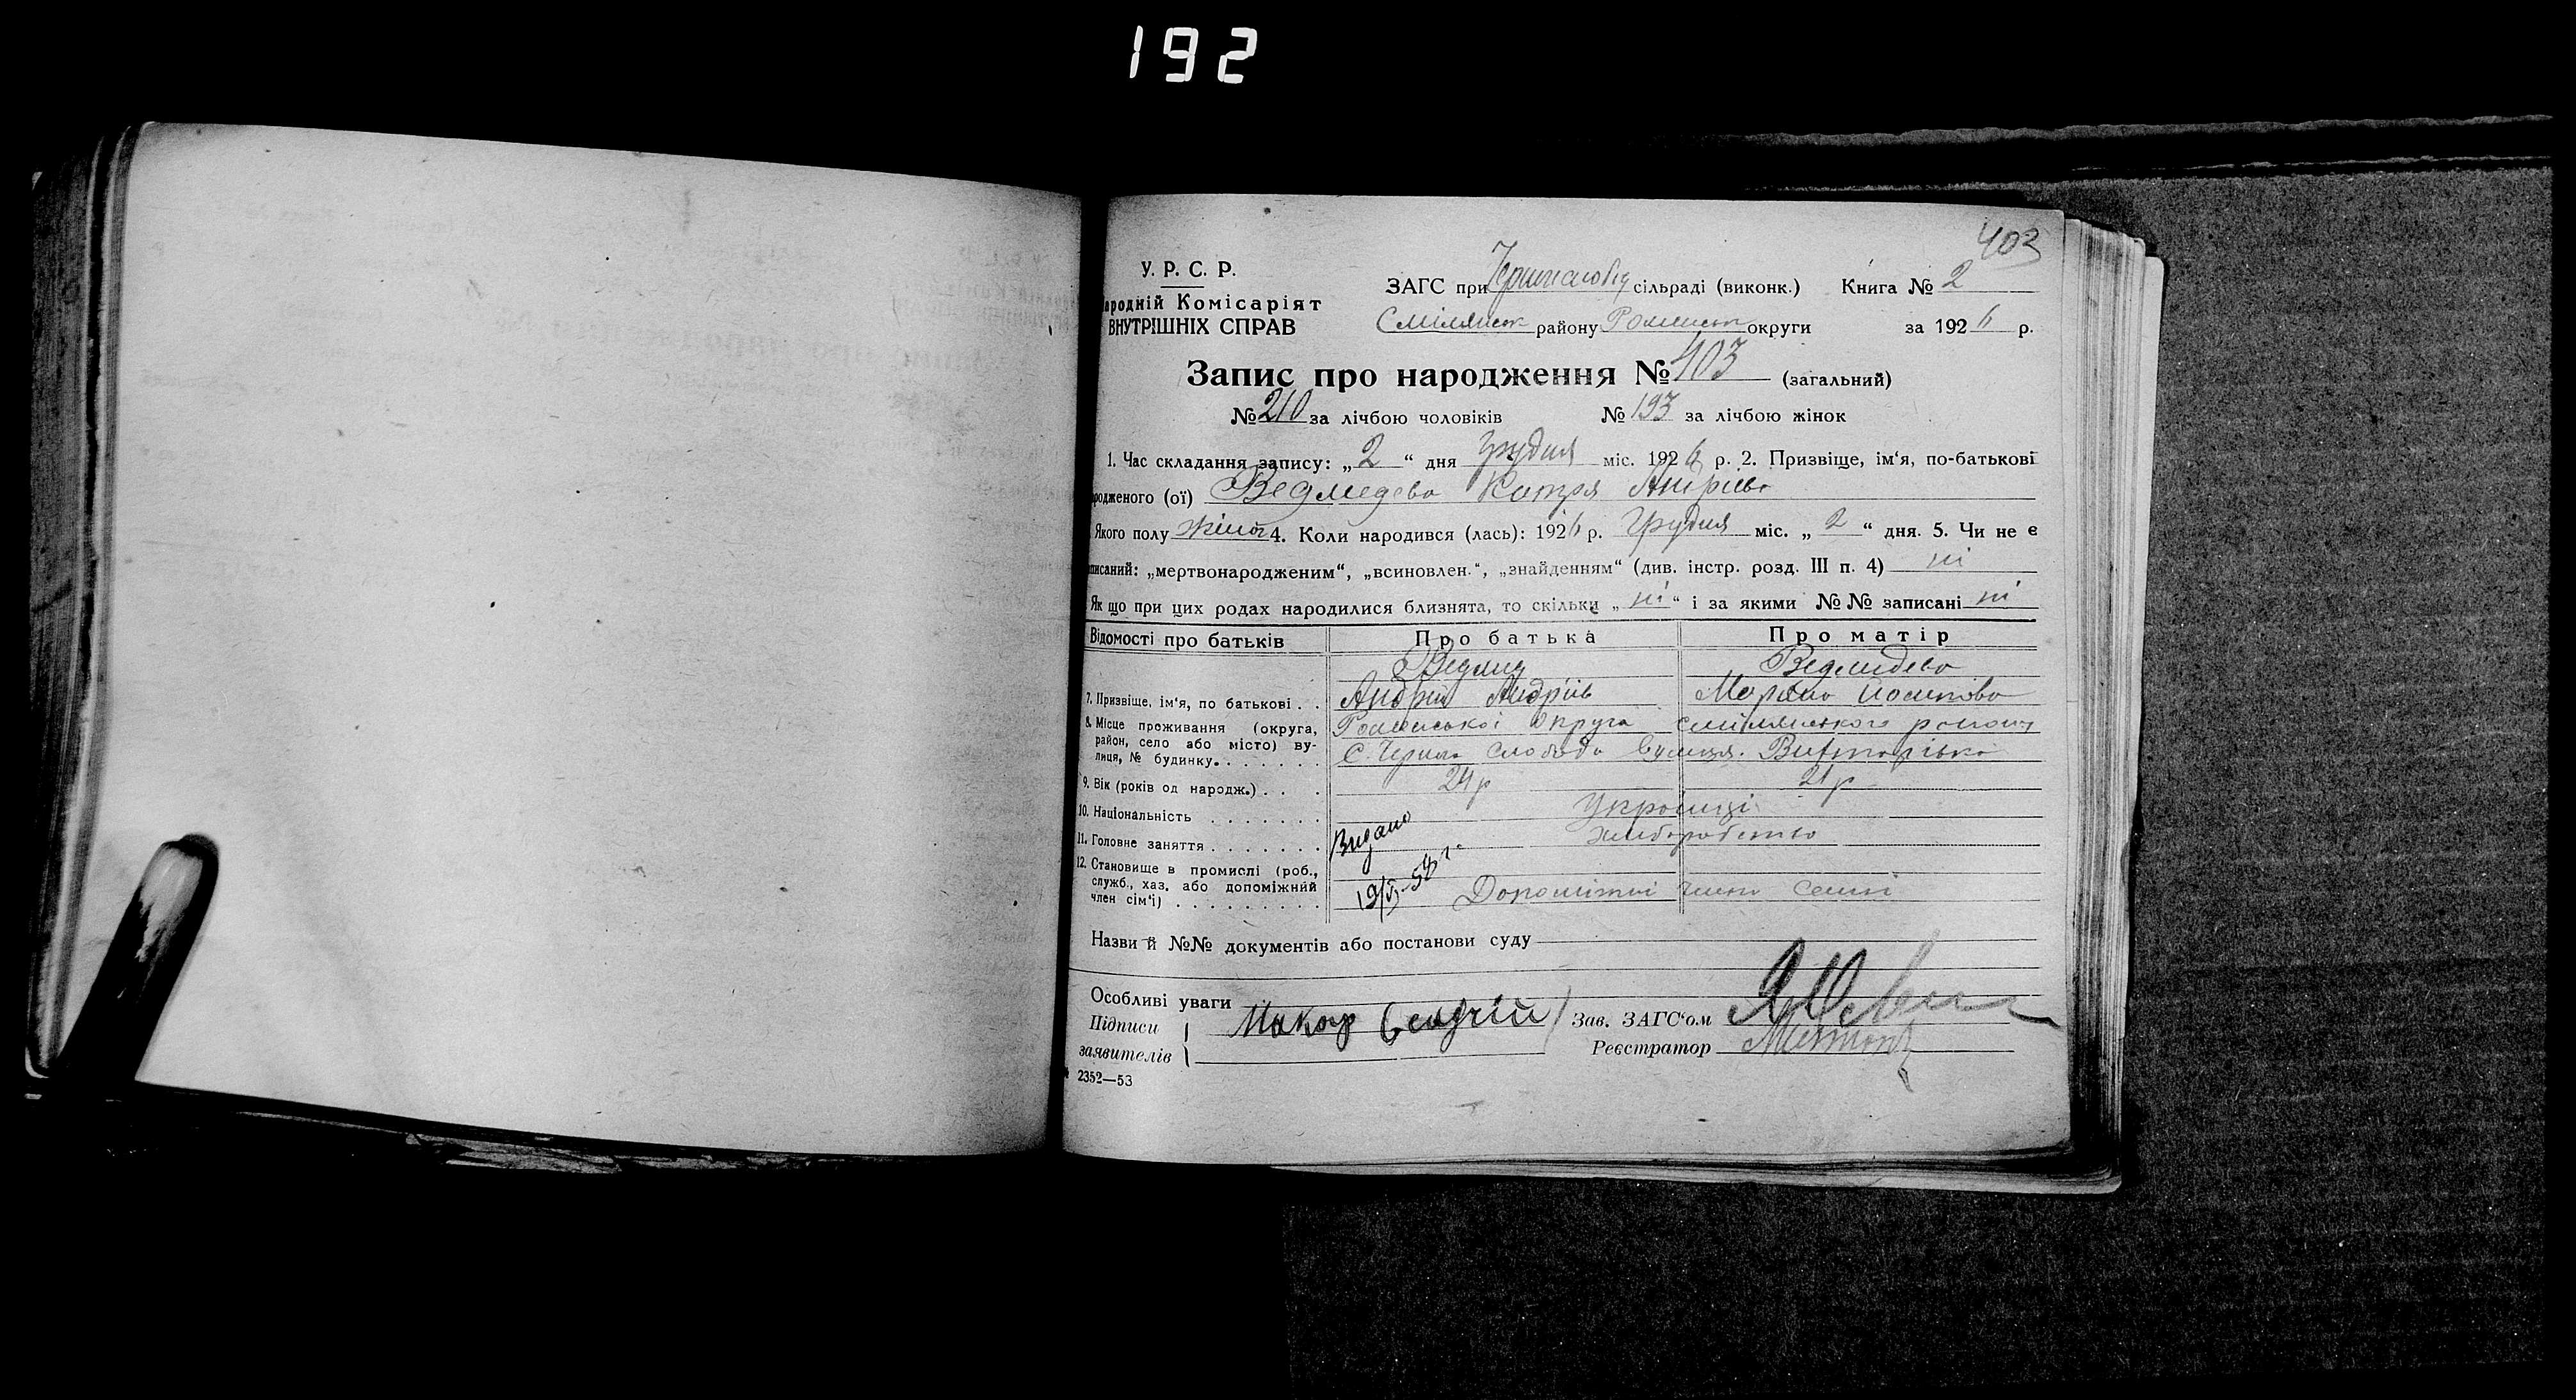 192
403
У. Р. С. Р.
ародній Комісаріят
ВНУТРІШНІХ СПРАВ
ЗАГС при сільраді (виконк.) Книга № 2
Смілянськ району Роменськ округи за 1926 р.
Запис про народження № 403 (загальний)
№ 210 за лічбою чоловіків № 193 за лічбою жінок
1. Час складання запису: „ 2 “ дня грудня міс. 1926 р. 2. Призвіще, ім‘я, по-батькові
родженого (ої) Ведмедева Катря Андрієва
Якого полу жіноч 4. Коли народився (лась): 1926 р. Грудня міс. „ 2 “ дня. 5. Чи не є
писаний: „мертвонародженим“, „всиновлен.“, „знайденням“ (див. інстр. розд. III п. 4) ні
Як що при цих родах народилися близнята, то скільки „ ні “ і за якими №№ записані ні
Відомості про батьків Про батька Про матір
Ведмід Ведмидева
7. Призвіще, ім‘я, по батькові . . Андрій Андріїв Мар Йосипова
8. Місце проживання (округа, район, село або місто) вулиця, № будинку. . . . . . . Роменської округа Смілянського району
С. Чернеча Слобода вулиця.
9. Вік (років од народж.) . . . 24 р 21 р
10. Національність . . . . . . . Українці
11. Головне заняття . . . . . . . Хліборобство
Видано
12. Становище в промислі (роб., служб., хаз. або допоміжний член сім‘ї) . . . . . . . . . Допоміжні члени семні
Назви й №№ документів або постанови суду
Особливі уваги
Підписи Макар Зав. ЗАГС‘ом
заявителів Реєстратор
2352—53